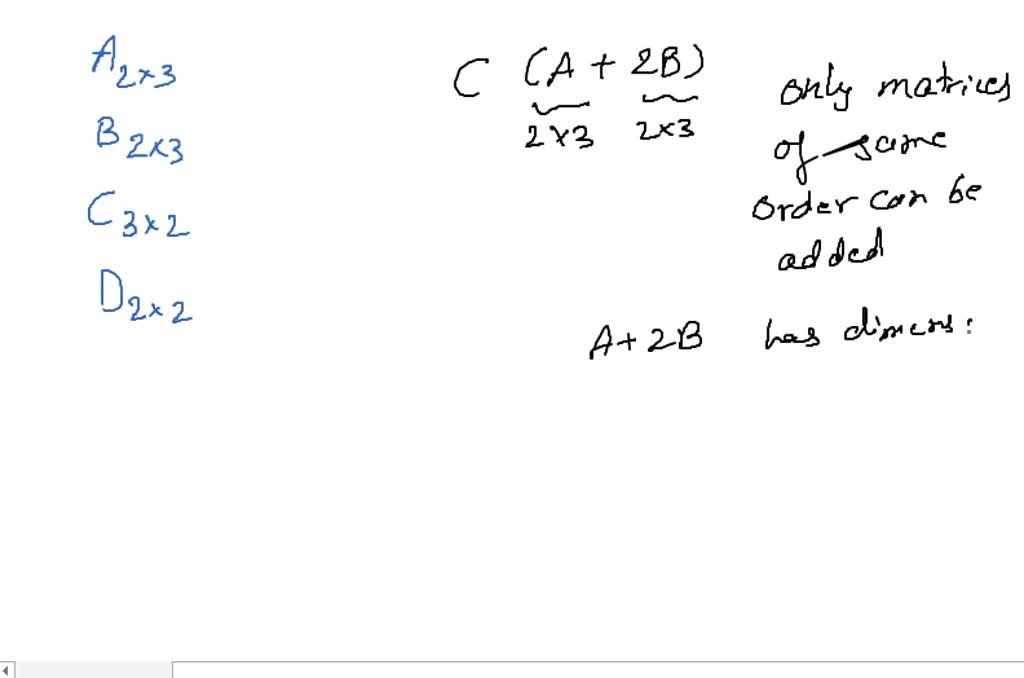 A2×3
B2×3
C3×2
D2×2
C (A + 2B)
2×3 2×3
only matrices
of same
order can be
added
A+2B has dimens: